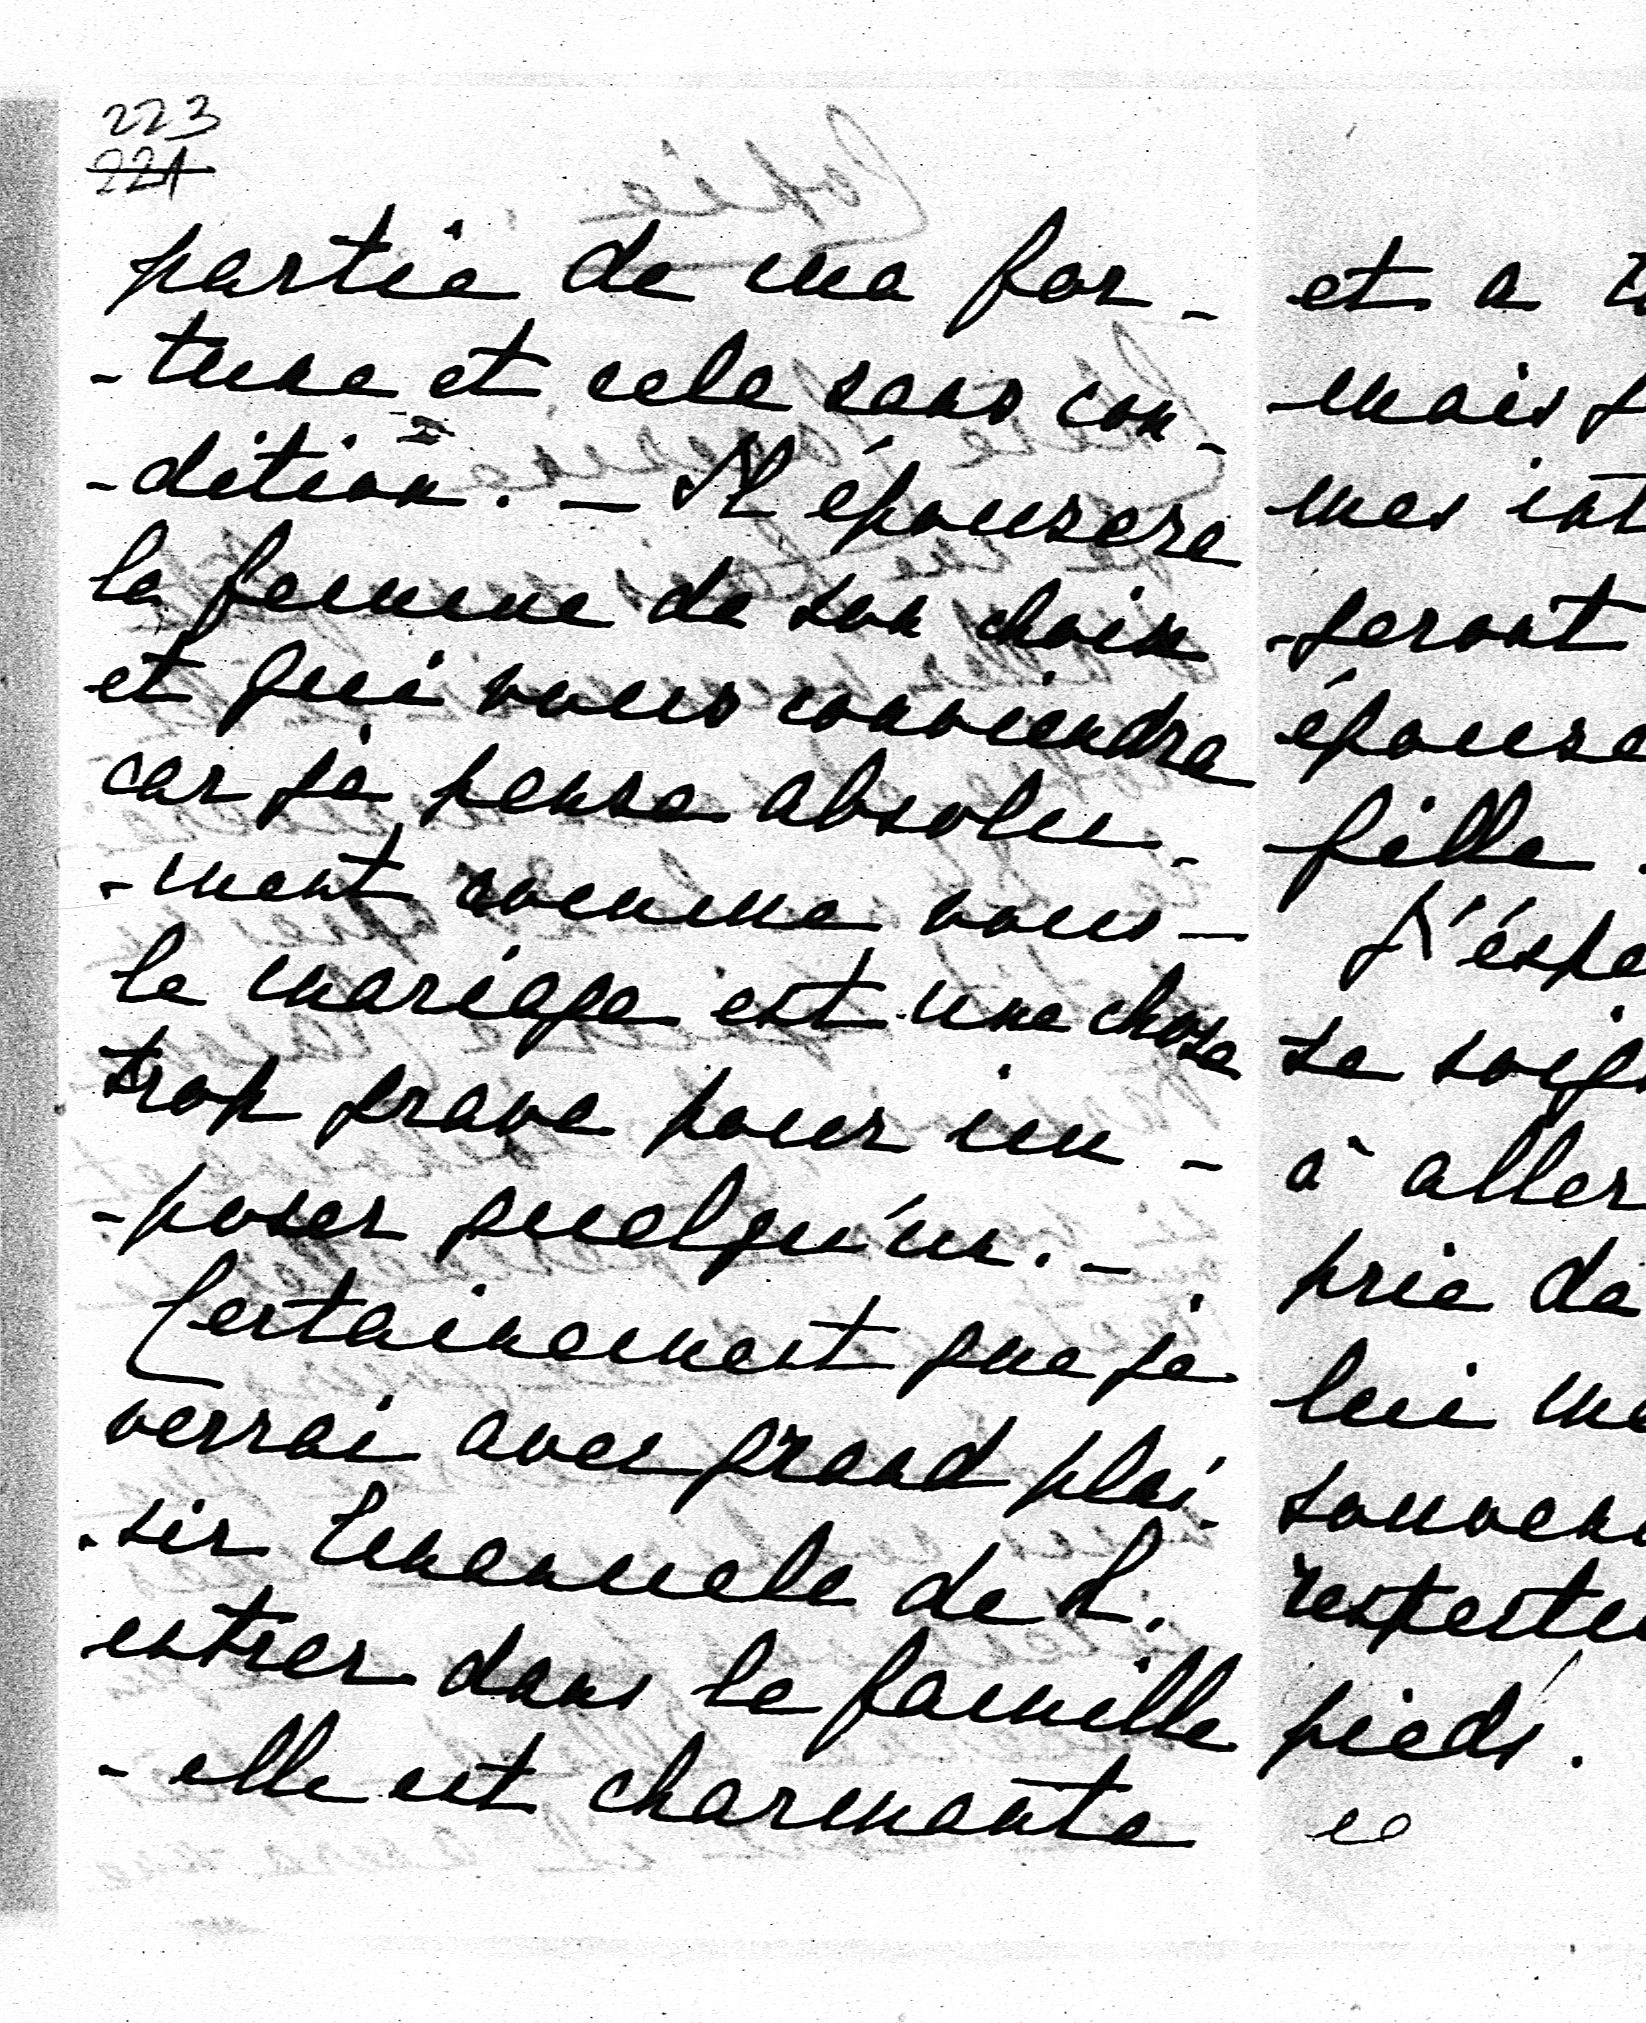 223
221
partie de ma for-
-tune et cela sans con-
-dition. - Il épousera
la femme de son choix
et qui vous conviendra
car je pense absolu-
-ment comme vous -
le mariage est une chose
trop grave pour im-
-poser quelqu'un. -
Certainement que je
verrai avec grand plai-
-sir Emanuela de L.
entrer dans la famille
- elle est charmante
et a
mais
mes int
-seront
épouse
fille.
J'éspe
se soig
à aller
prie de
lui me
souven
respectu
pieds.